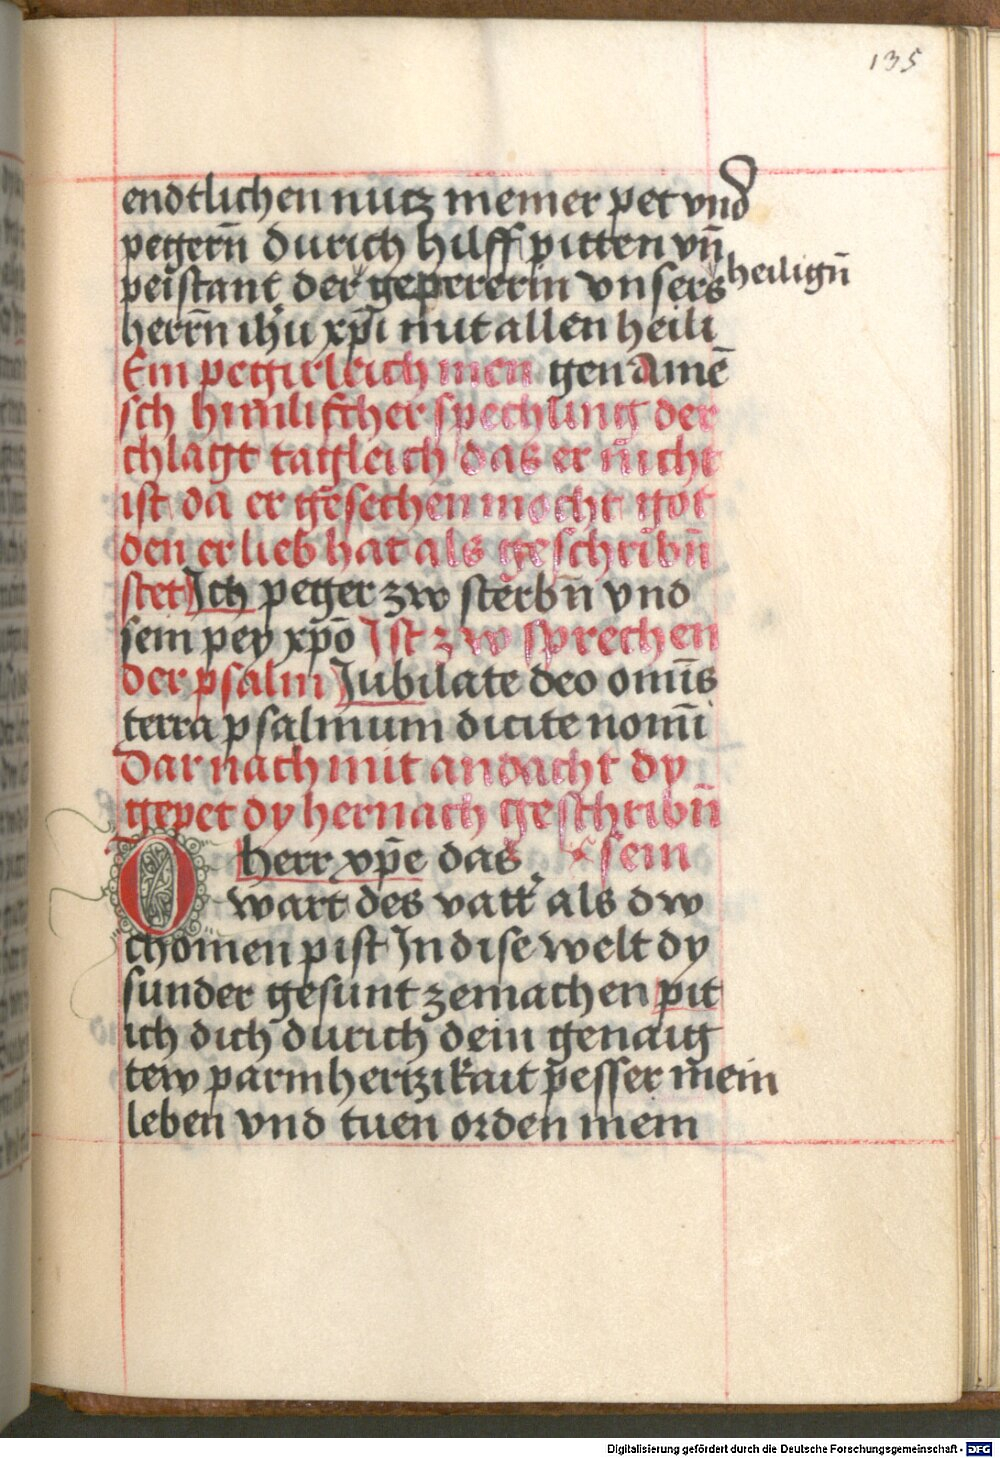 135
endtlichen nutz meiner pet vnd
pegern̄ durich hilff pitten vn̄
peistant der gepererin vnsers heilign̄
herrn̄ ih̄u xp̄i mit allen heili
Ein pegirleich men gen Amē
sch himlischer spechling der
chlagt tagleich das er nicht
ist da er gesechen mocht got
den er lieb hat als geschribn̄
stet Ich peger zw sterbn̄ vnd
sein pey xp̄o Ist zw sprechen
der psalm Jubilate deo omīs
terra psalmum dicite nomī
Dar nach mit andacht dy
gepet dy hernach geschribn̄
O herr xp̄e das sein
wart des vatt̄ als dw
chomen pist In dise welt dy
sunder gesunt zemachen pit
ich dich durich dein genaig
tew parmhertzikait pesser mein
leben vnd tuen orden mein
Digitalisierung gefördert durch die Deutsche Forschungsgemeinschaft - DFG